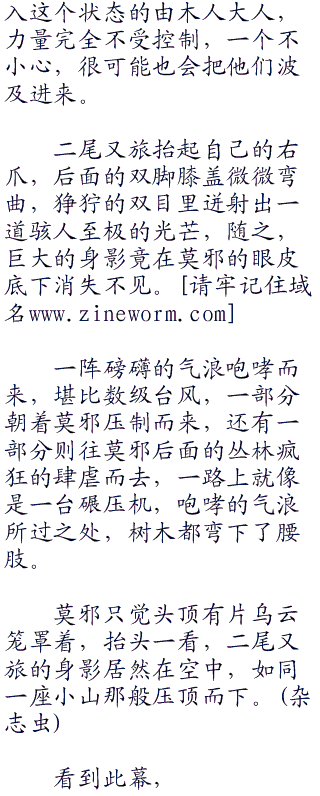 入这个状态的由木人大人，
力量完全不受控制，一个不
小心，很可能也会把他们波
及进来。
二尾又旅抬起自己的右
爪，后面的双脚膝盖微微弯
曲，狰狞的双目里迸射出一
道骇人至极的光芒，随之，
巨大的身影竟在莫邪的眼皮
底下消失不见。[请牢记住域
名www.zineworm.com]
一阵磅礴的气浪咆哮而
来，堪比数级台风，一部分
朝着莫邪压制而来，还有一
部分则往莫邪后面的丛林疯
狂的肆虐而去，一路上就像
是一台碾压机，咆哮的气浪
所过之处，树木都弯下了腰
肢。
莫邪只觉头顶有片乌云
笼罩着，抬头一看，二尾又
旅的身影居然在空中，如同
一座小山那般压顶而下。(杂
志虫)
看到此幕，